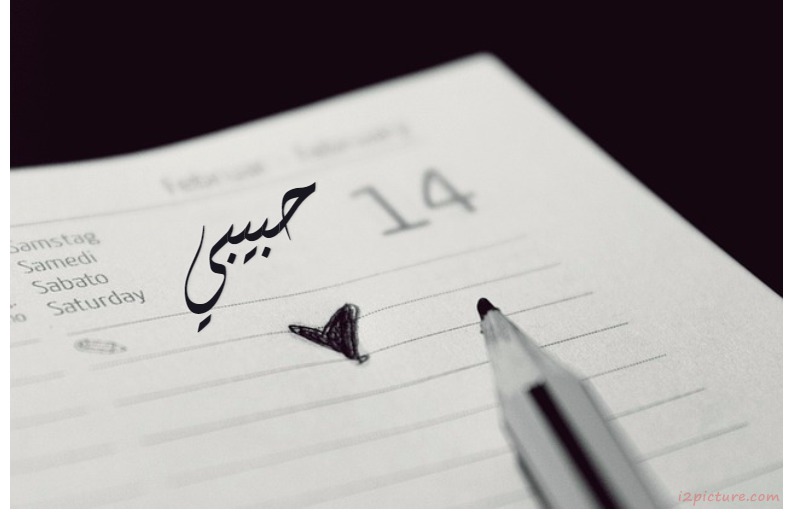 Februar - February
14
Samstag
Samedi
Sabato
Saturday
حبيبي
i2picture.com